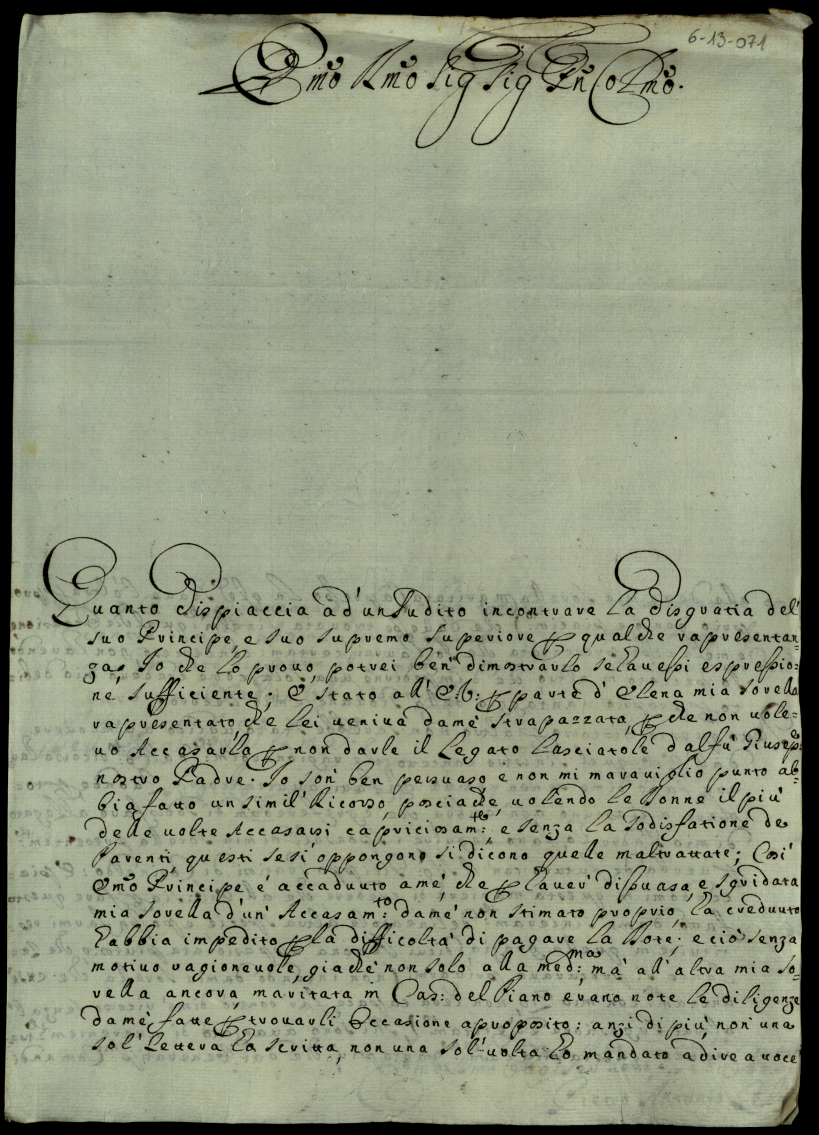 6-13-071
Emo Rmo Sig Sig Prn Colmo.
Quanto dispiaccia ad' un Sudito incontrare la disgratia del'
suo Principe, e suo supremo Superiore p qualche rapresentan=
za, Io che lo prouo, potrei ben' dimostrarlo se hauessi espressio=
ne sufficiente; è stato all' E. V: p parte d' Elena mia sorella
rapresentato che lei ueniua da mè strapazzata, p che non uole=
uo Accasarla p non darle il Legato lasciatole dal fù Giusep:
nostro Padre. Io son' ben persuaso e non mi marauiglio punto ab=
bia fatto un simil' Ricorso, posciache, uolendo le Donne il più
delle uolte Accasarsi capriciosam:te, e senza la Sodisfatione de
Parenti, questi se si oppongono si dicono quelle maltrattate; Così
Emo Principe è accaduuto a mè, che p hauer' disuasa, e sgridata
mia sorella d' un' Accasam:to da mè non stimato proprio, ha creduuto
l' abbia impedito p la difficoltà di pagare la Dote; e ciò senza
motiuo ragioneuole, già che non solo alla med:ma mà all' altra mia so=
rella ancora maritata in Cas: del Piano erano note le diligenze
da mè fatte p trouarli Occasione a proposito: anzi di più non una
sol' Lettera ho scritta, non una sol' uolta hò mandato à dire a uoce